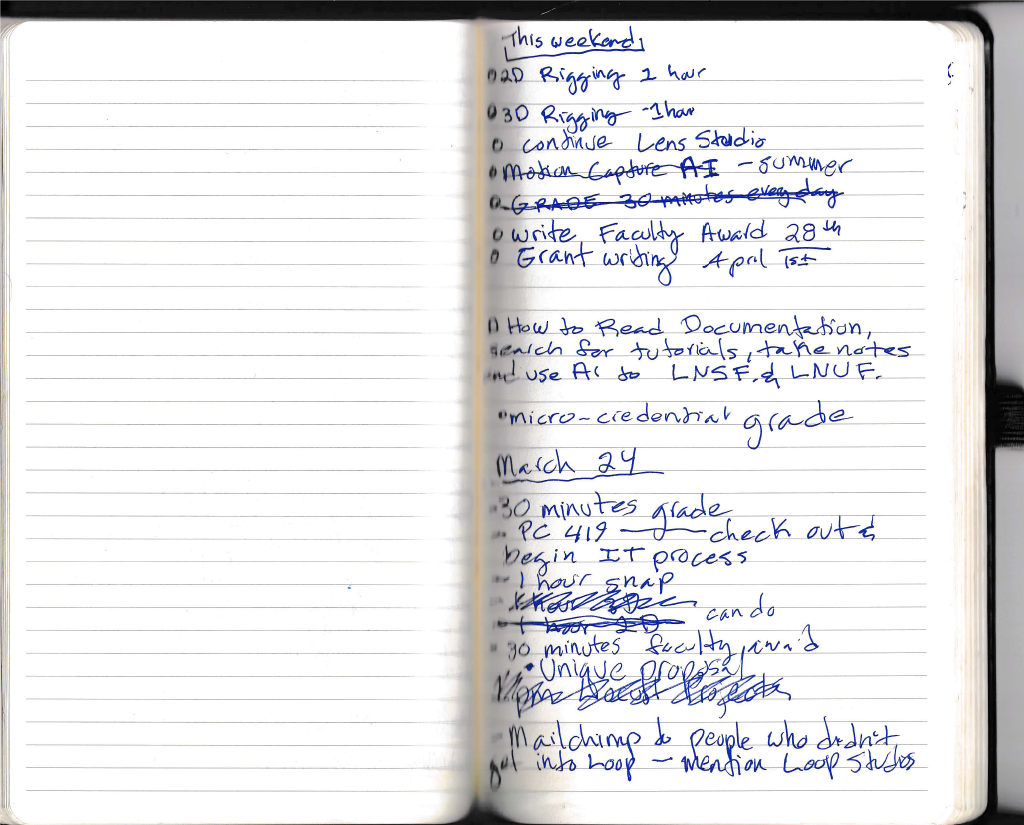 This weekend
2D Rigging 1 hour
3D Rigging - 1 hour
continue Lens Studio
Motion Capture AI - summer
GRADE 30 minutes every day
write Faculty Award 28th
Grant writing April 1st
How to Read Documentation,
search for tutorials, take notes
and use AI to LNSF. & LNUF.
• micro-credential grade
March 24
- 30 minutes grade
- PC 419 — check out &
begin IT process
- 1 hour snap
1 hour 3D
- 1 hour 2D can do
- 30 minutes faculty award
• Unique proposal
- Mailchimp to people who didn't
get into Loop - mention Loop Studios